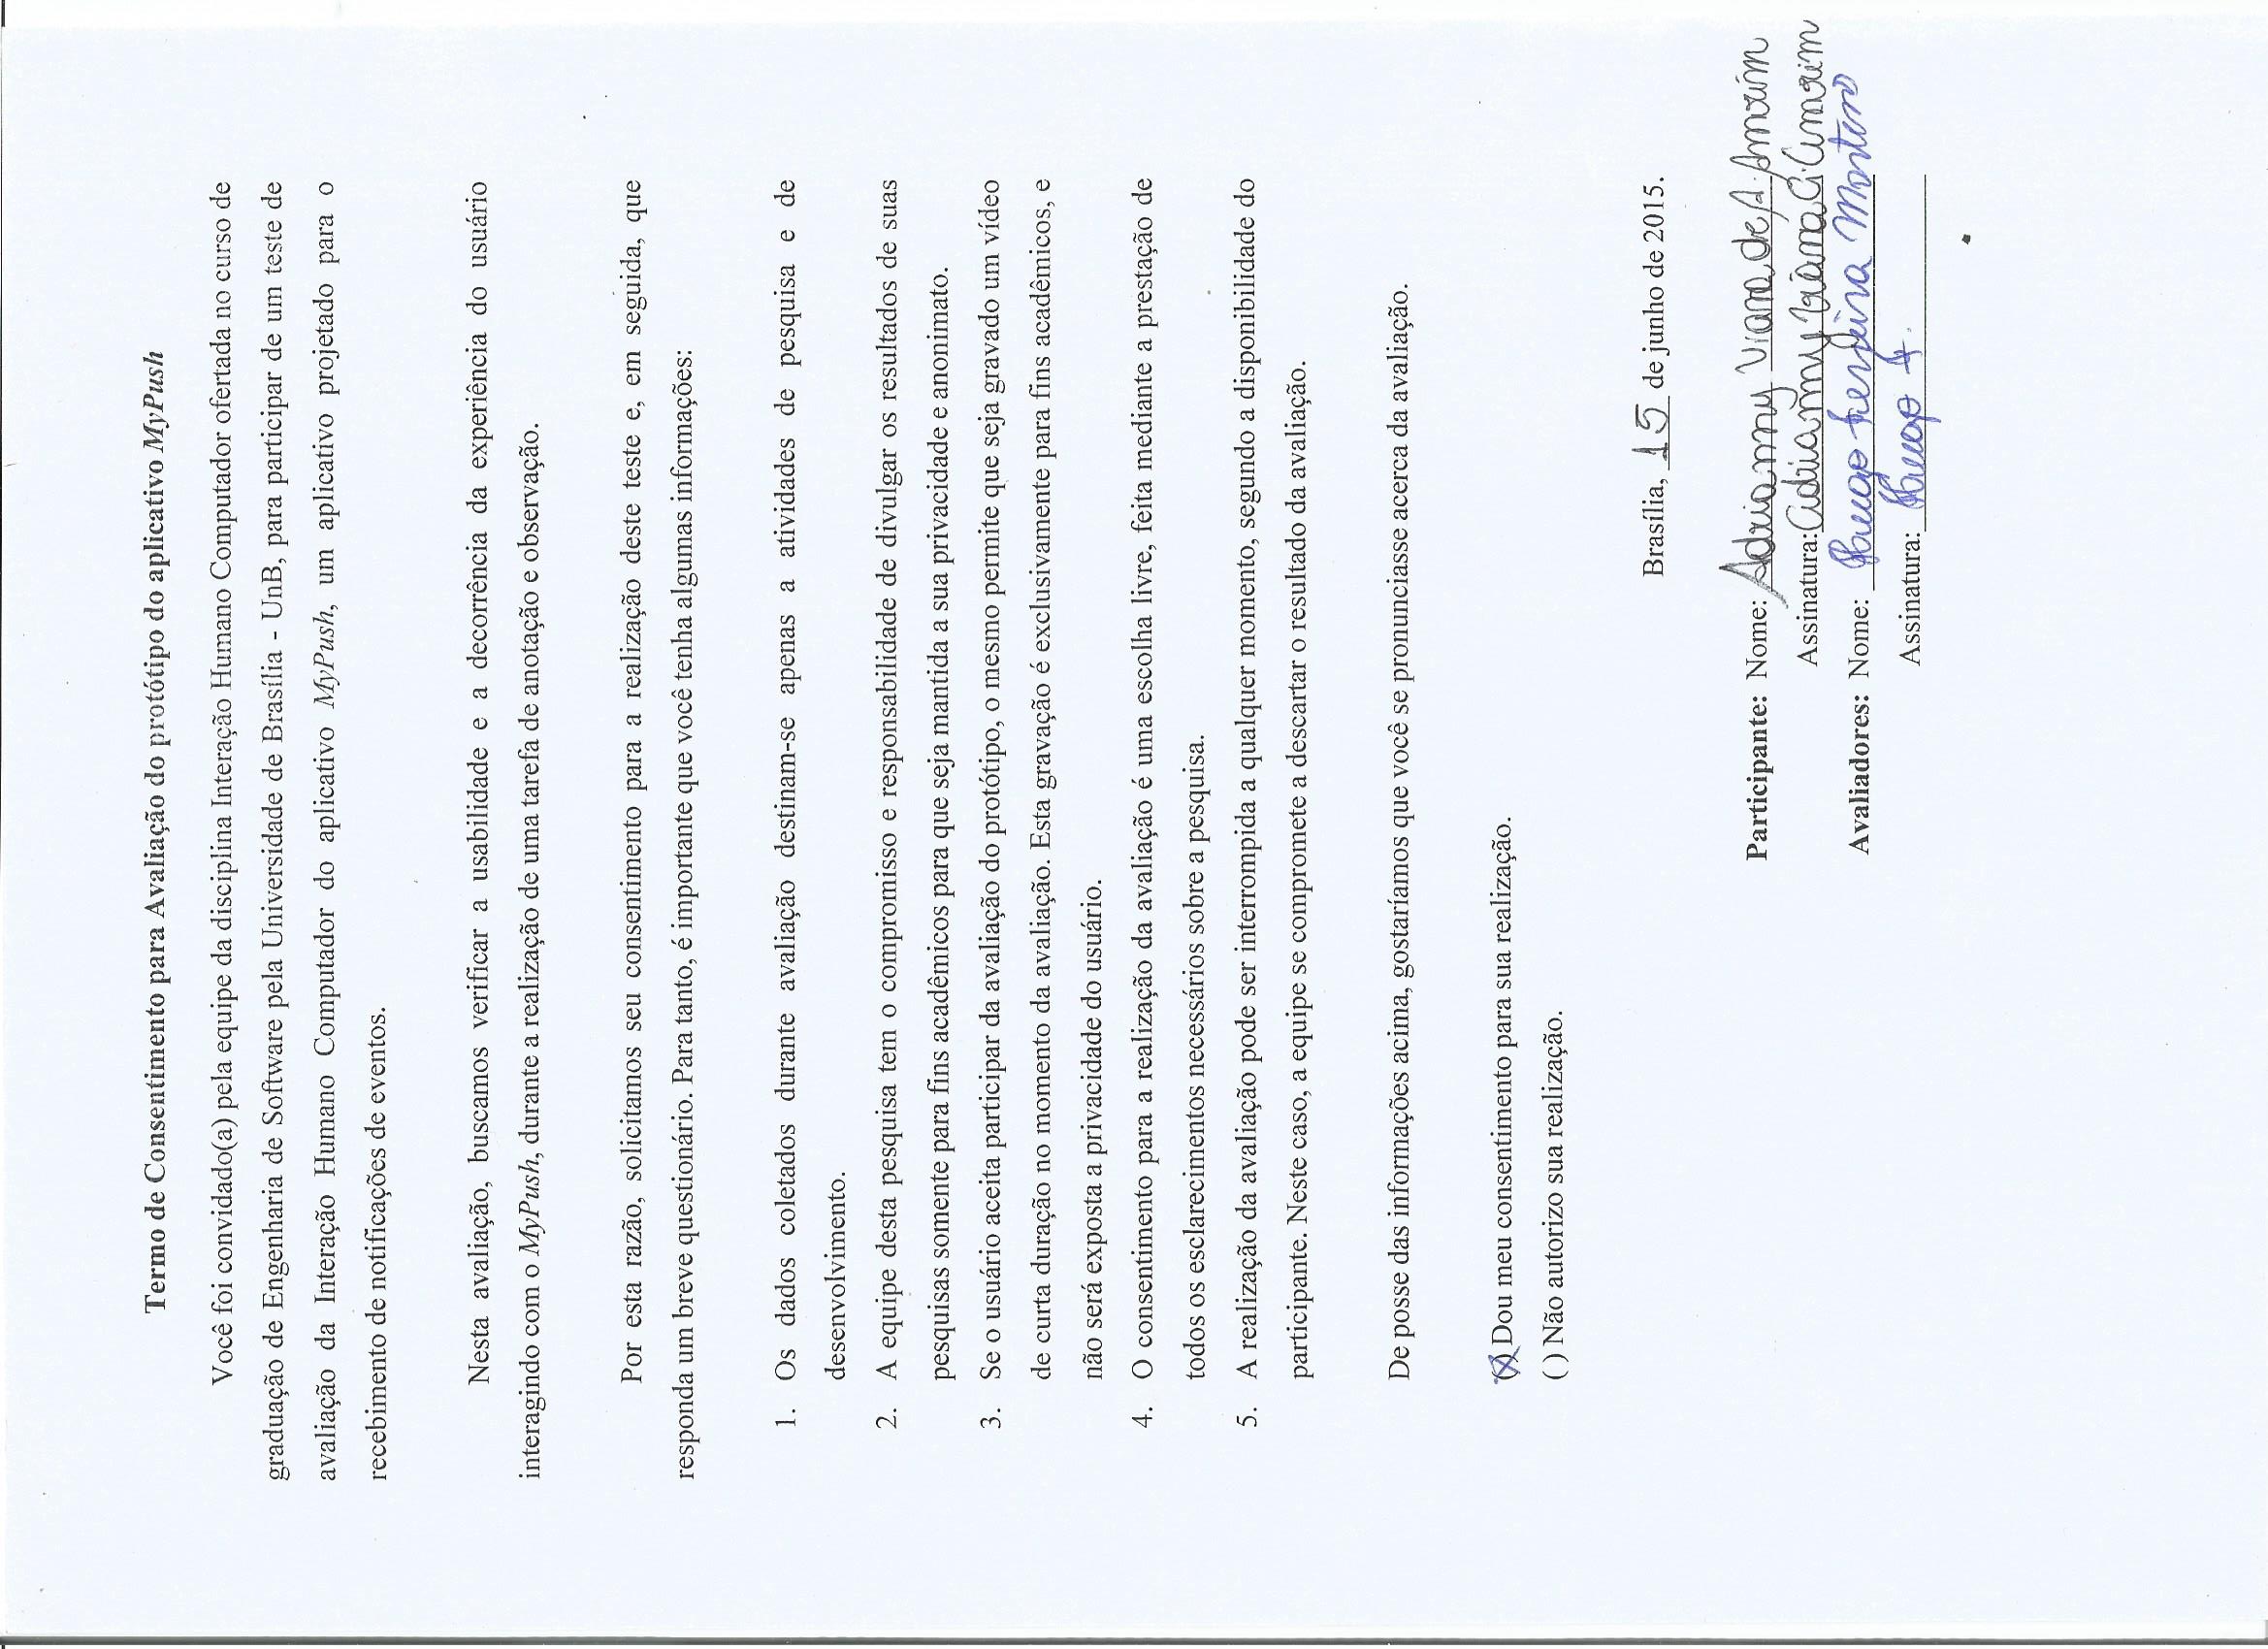 Termo de Consentimento para Avaliação do protótipo do aplicativo MyPush
Você foi convidado(a) pela equipe da disciplina Interação Humano Computador ofertada no curso de
graduação de Engenharia de Software pela Universidade de Brasília - UnB, para participar de um teste de
avaliação da Interação Humano Computador do aplicativo MyPush, um aplicativo projetado para o
recebimento de notificações de eventos.
Nesta avaliação, buscamos verificar a usabilidade e a decorrência da experiência do usuário
interagindo com o MyPush, durante a realização de uma tarefa de anotação e observação.
Por esta razão, solicitamos seu consentimento para a realização deste teste e, em seguida, que
responda um breve questionário. Para tanto, é importante que você tenha algumas informações:
1. Os dados coletados durante avaliação destinam-se apenas a atividades de pesquisa e de
desenvolvimento.
2. A equipe desta pesquisa tem o compromisso e responsabilidade de divulgar os resultados de suas
pesquisas somente para fins acadêmicos para que seja mantida a sua privacidade e anonimato.
3. Se o usuário aceita participar da avaliação do protótipo, o mesmo permite que seja gravado um vídeo
de curta duração no momento da avaliação. Esta gravação é exclusivamente para fins acadêmicos, e
não será exposta a privacidade do usuário.
4. O consentimento para a realização da avaliação é uma escolha livre, feita mediante a prestação de
todos os esclarecimentos necessários sobre a pesquisa.
5. A realização da avaliação pode ser interrompida a qualquer momento, segundo a disponibilidade do
participante. Neste caso, a equipe se compromete a descartar o resultado da avaliação.
De posse das informações acima, gostaríamos que você se pronunciasse acerca da avaliação.
(X) Dou meu consentimento para sua realização.
( ) Não autorizo sua realização.
Brasília, 15 de junho de 2015.
Participante: Nome: Adrianny Viana de A. Amorim
Assinatura: Adrianny Viana A. Amorim
Avaliadores: Nome: Monteiro
Assinatura: